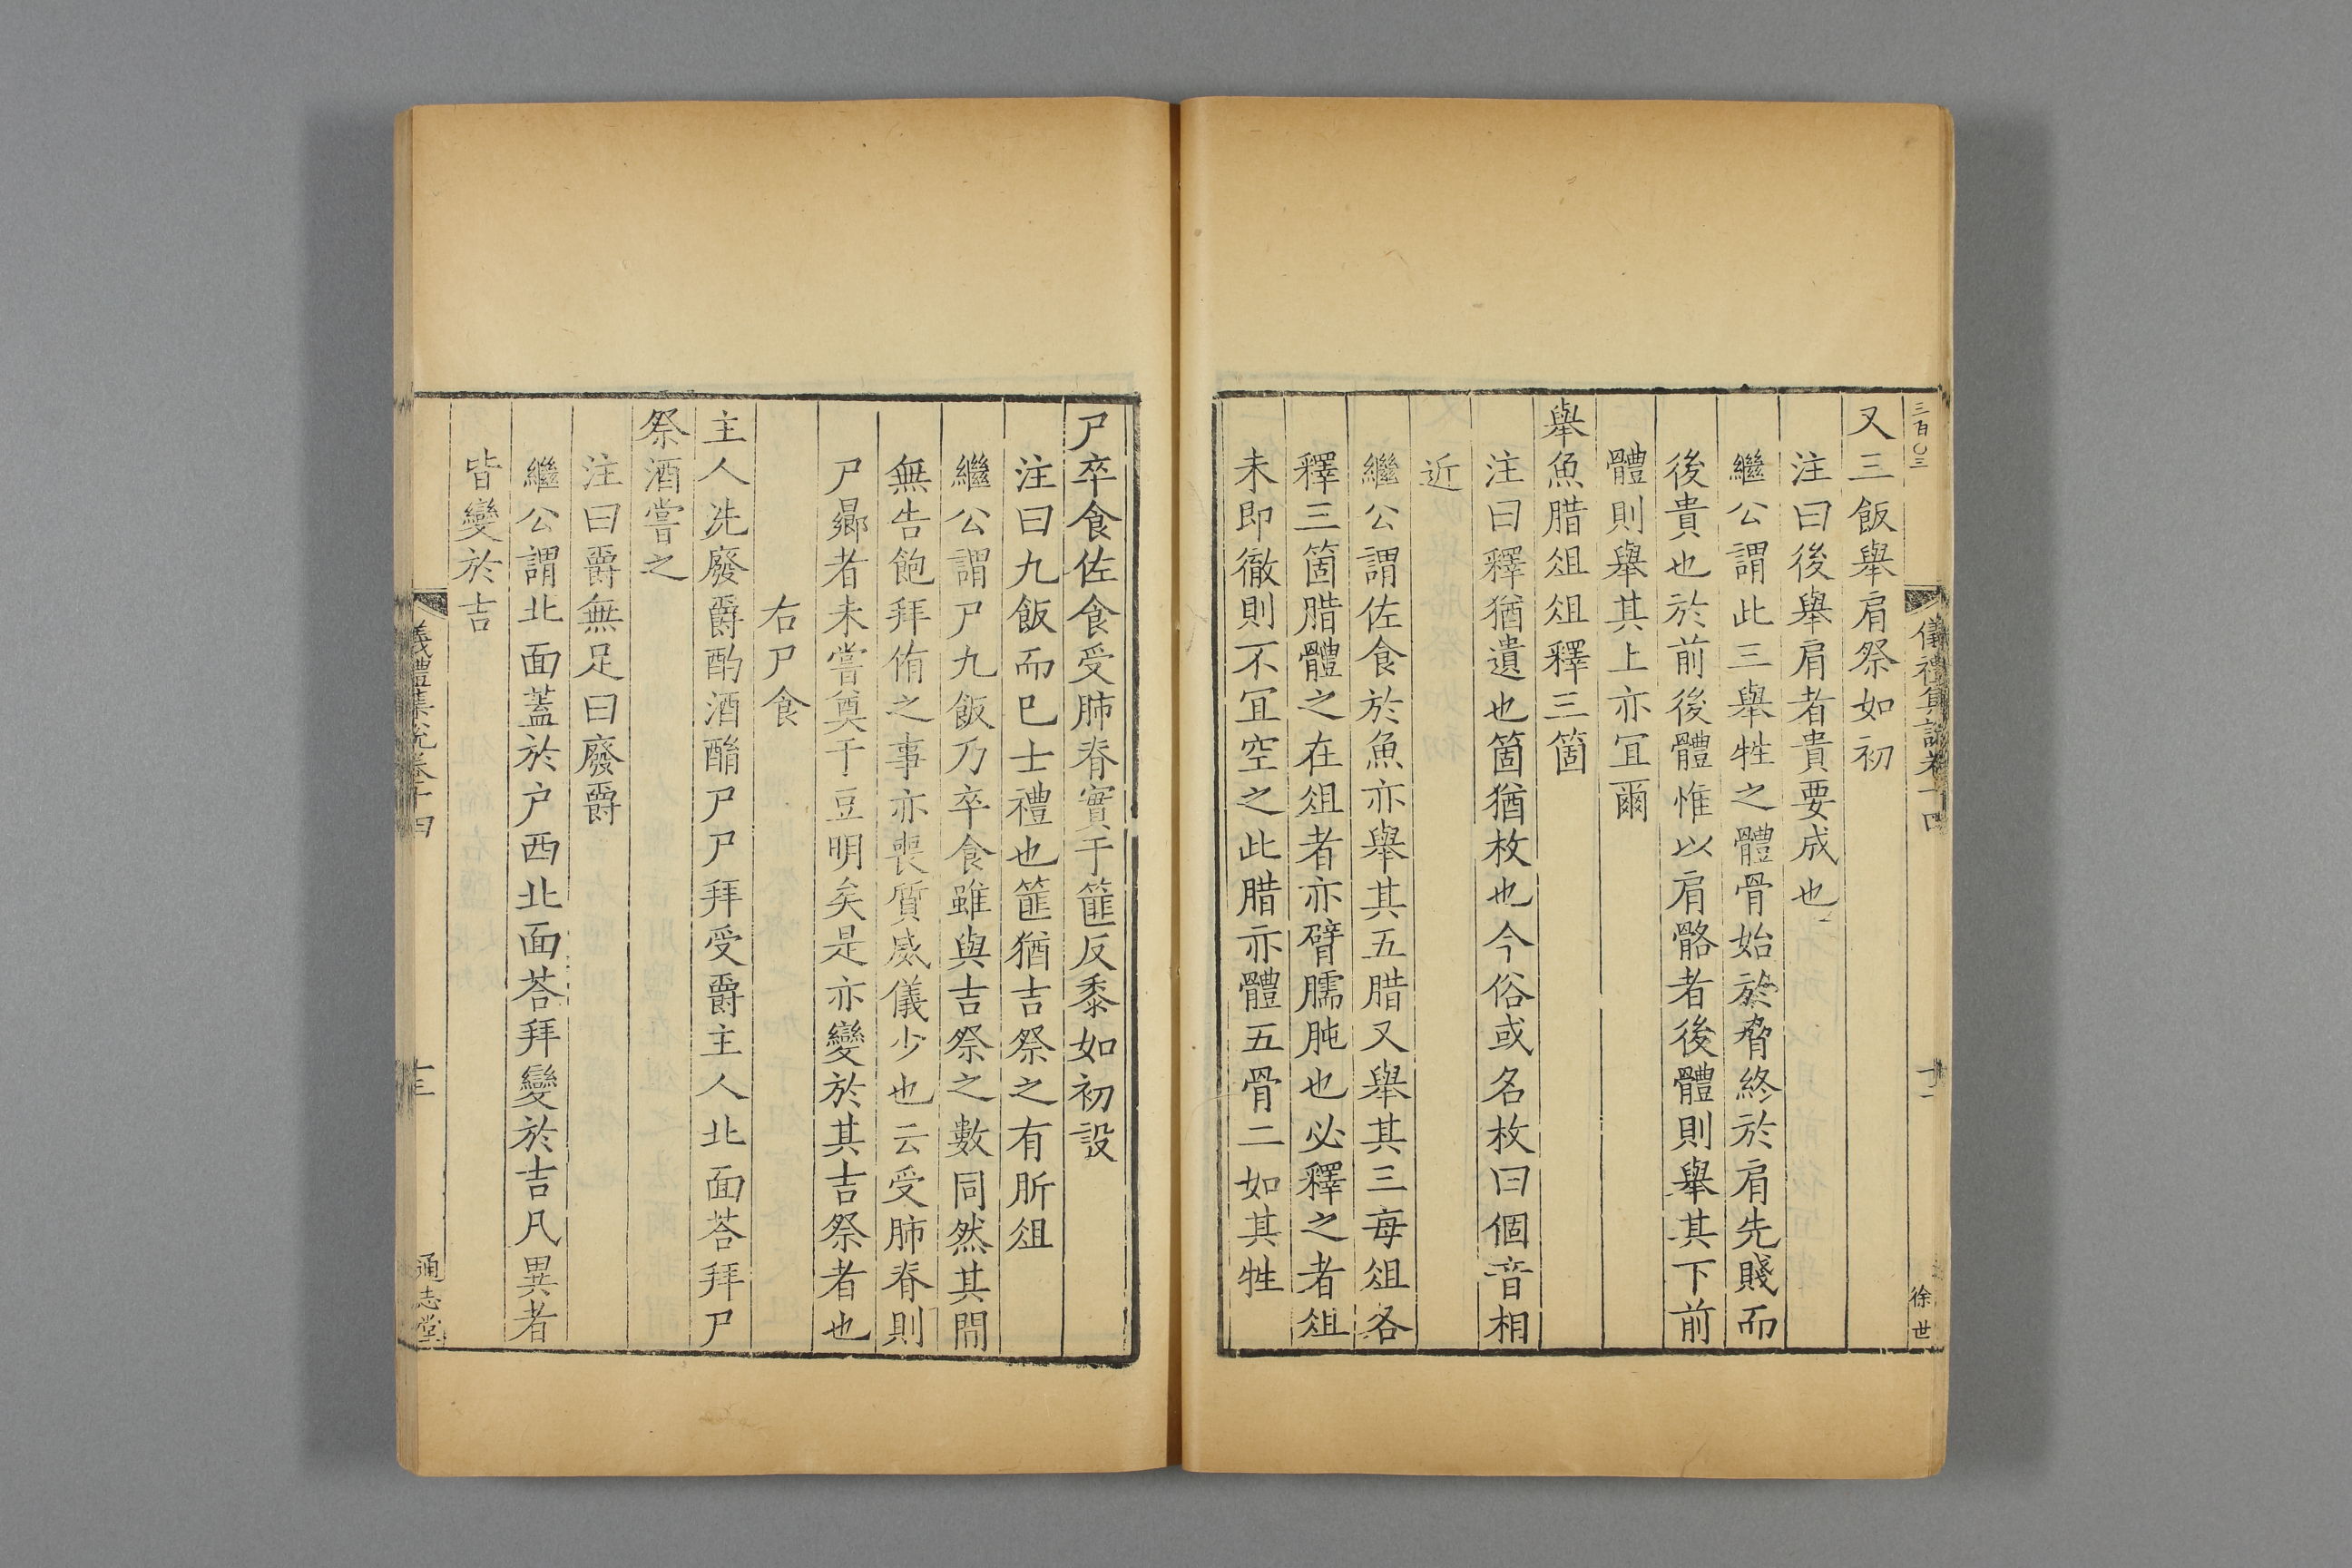 三百〇三
又三飯舉肩祭如初
注曰後舉肩者貴要成也
繼公謂此三舉牲之體骨始於脅終於肩先賤而
後貴也於前後體惟以肩骼者後體則舉其下前
體則舉其上亦宜爾
舉魚腊俎俎釋三箇
注曰釋猶遺也箇猶枚也今俗或名枚曰個音相
近
繼公謂佐食於魚亦舉其五腊又舉其三每俎各
釋三箇腊體之在俎者亦臂臑肫也必釋之者俎
未即徹則不宜空之此腊亦體五骨二如其牲
儀禮集說卷十四
徐世
尸卒食佐食受肺脊實于篚反黍如初設
注曰九飯而已士禮也篚猶吉祭之有肵俎
繼公謂尸九飯乃卒食雖與吉祭之數同然其閒
無告飽拜侑之事亦喪質威儀少也云受肺脊則
尸曏者未嘗奠于豆明矣是亦變於其吉祭者也
右尸食
主人洗廢爵酌酒酳尸尸拜受爵主人北面荅拜尸
祭酒嘗之
注曰爵無足曰廢爵
繼公謂北面蓋於户西北面荅拜變於吉凡異者
皆變於吉
儀禮集說卷十四
十三
通志堂